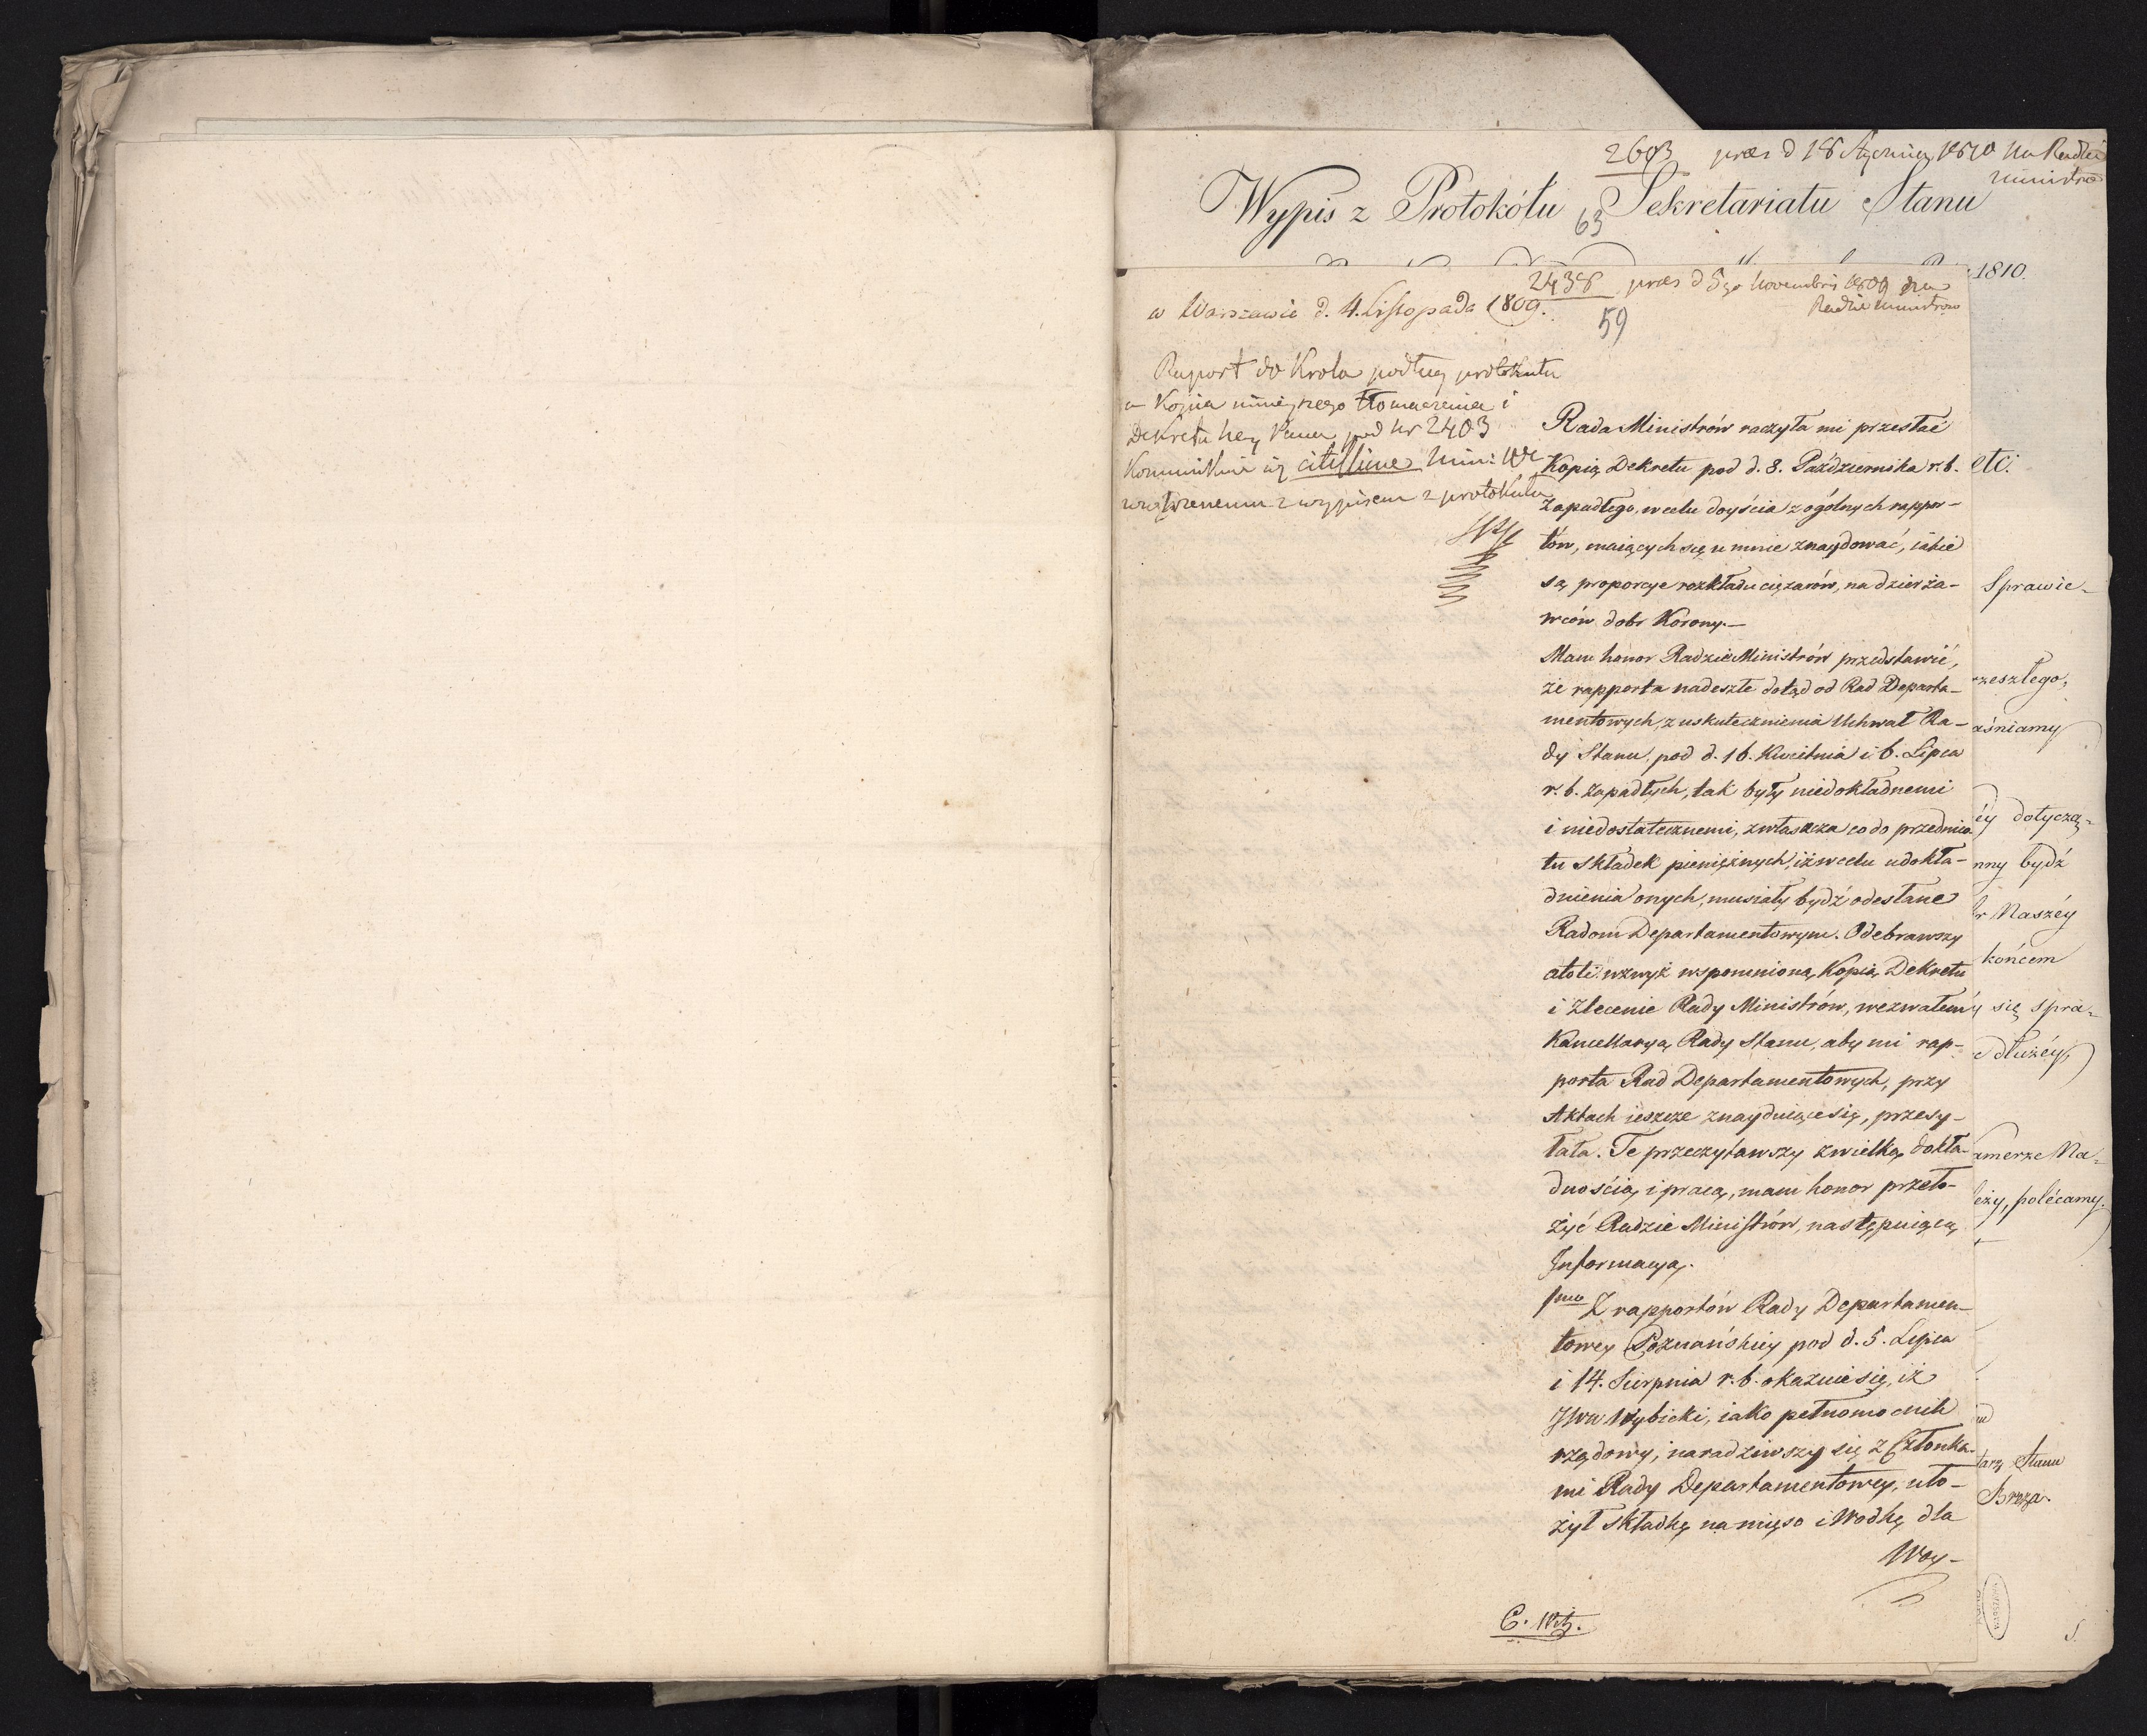 2603 præs d 18 Stycznia 1810 na Radzie
Ministrów
Wypis z Protokółu Sekretariatu Stanu
63
1810.
2438 præs d 5go Novembris 1809 na
Radzie Ministrow
w Warszawie d. 4. Listopada 1809.
59
Raport do Krola podług protokułu
a Kopia ninieyszego tłomaczenia i
Dekretu Ney Pana pod Nr 2403
Kommunikuie się citissime Mini: We
wnętrznemu z wypisem z protokułu
Rada Ministrów raczyła mi przesłać
Kopią Dekretu pod d. 8. Października r. b.
zapadłego, w celu doyścia z ogólnych rappor-
tów, maiących się u mnie znaydować, iakie
są proporcye rozkładu ciężarów, na dzierża-
wców dobr Korony.—
Mam honor Radzie Ministrów przedstawić,
że rapporta nadeszłe dotąd od Rad Departa-
mentowych, z uskutecznienia Uchwał Ra-
dy Stanu, pod d. 16. Kwietnia i 6. Lipca
r. b. zapadłych, tak były niedokładnemi
i niedostatecznemi, zwłaszcza co do przedmio
tu składek pieniężnych, iż w celu udokła-
dnienia onych, musiały bydź odesłane
Radom Departamentowym. Odebrawszy
atoli wzwyż wspomnioną Kopią Dekretu
i Zlecenie Rady Ministrów, wezwałem
Kancellaryą Rady Stanu, aby mi rap-
porta Rad Departamentowych, przy
Aktach ieszcze znayduiące się, przesy-
łała. Te przeczytawszy z wielką dokła-
dnością i pracą, mam honor przeło-
żyć Radzie Ministrów, następuiącą
Informacyą.
1mo Z rapportów Rady Departamen-
towey Poznańskiey pod d. 5. Lipca
i 14. Sierpnia r. b. okazuie się, iż
JWu Wybicki, iako pełnomocnik
rządowy, naradziwszy się z Członka-
mi Rady Departamentowey, uło-
żył składkę na mięso i Wodkę dla
Woy-
C. Wtz.
etc.
Sprawie-
rzeszłego,
aśniamy
éy dotyczą-
nny bydź
Naszéy
końcem
y się spra-
dłużéy,
amerze Na-
eży, polécamy.
arz Stanu
Breza.